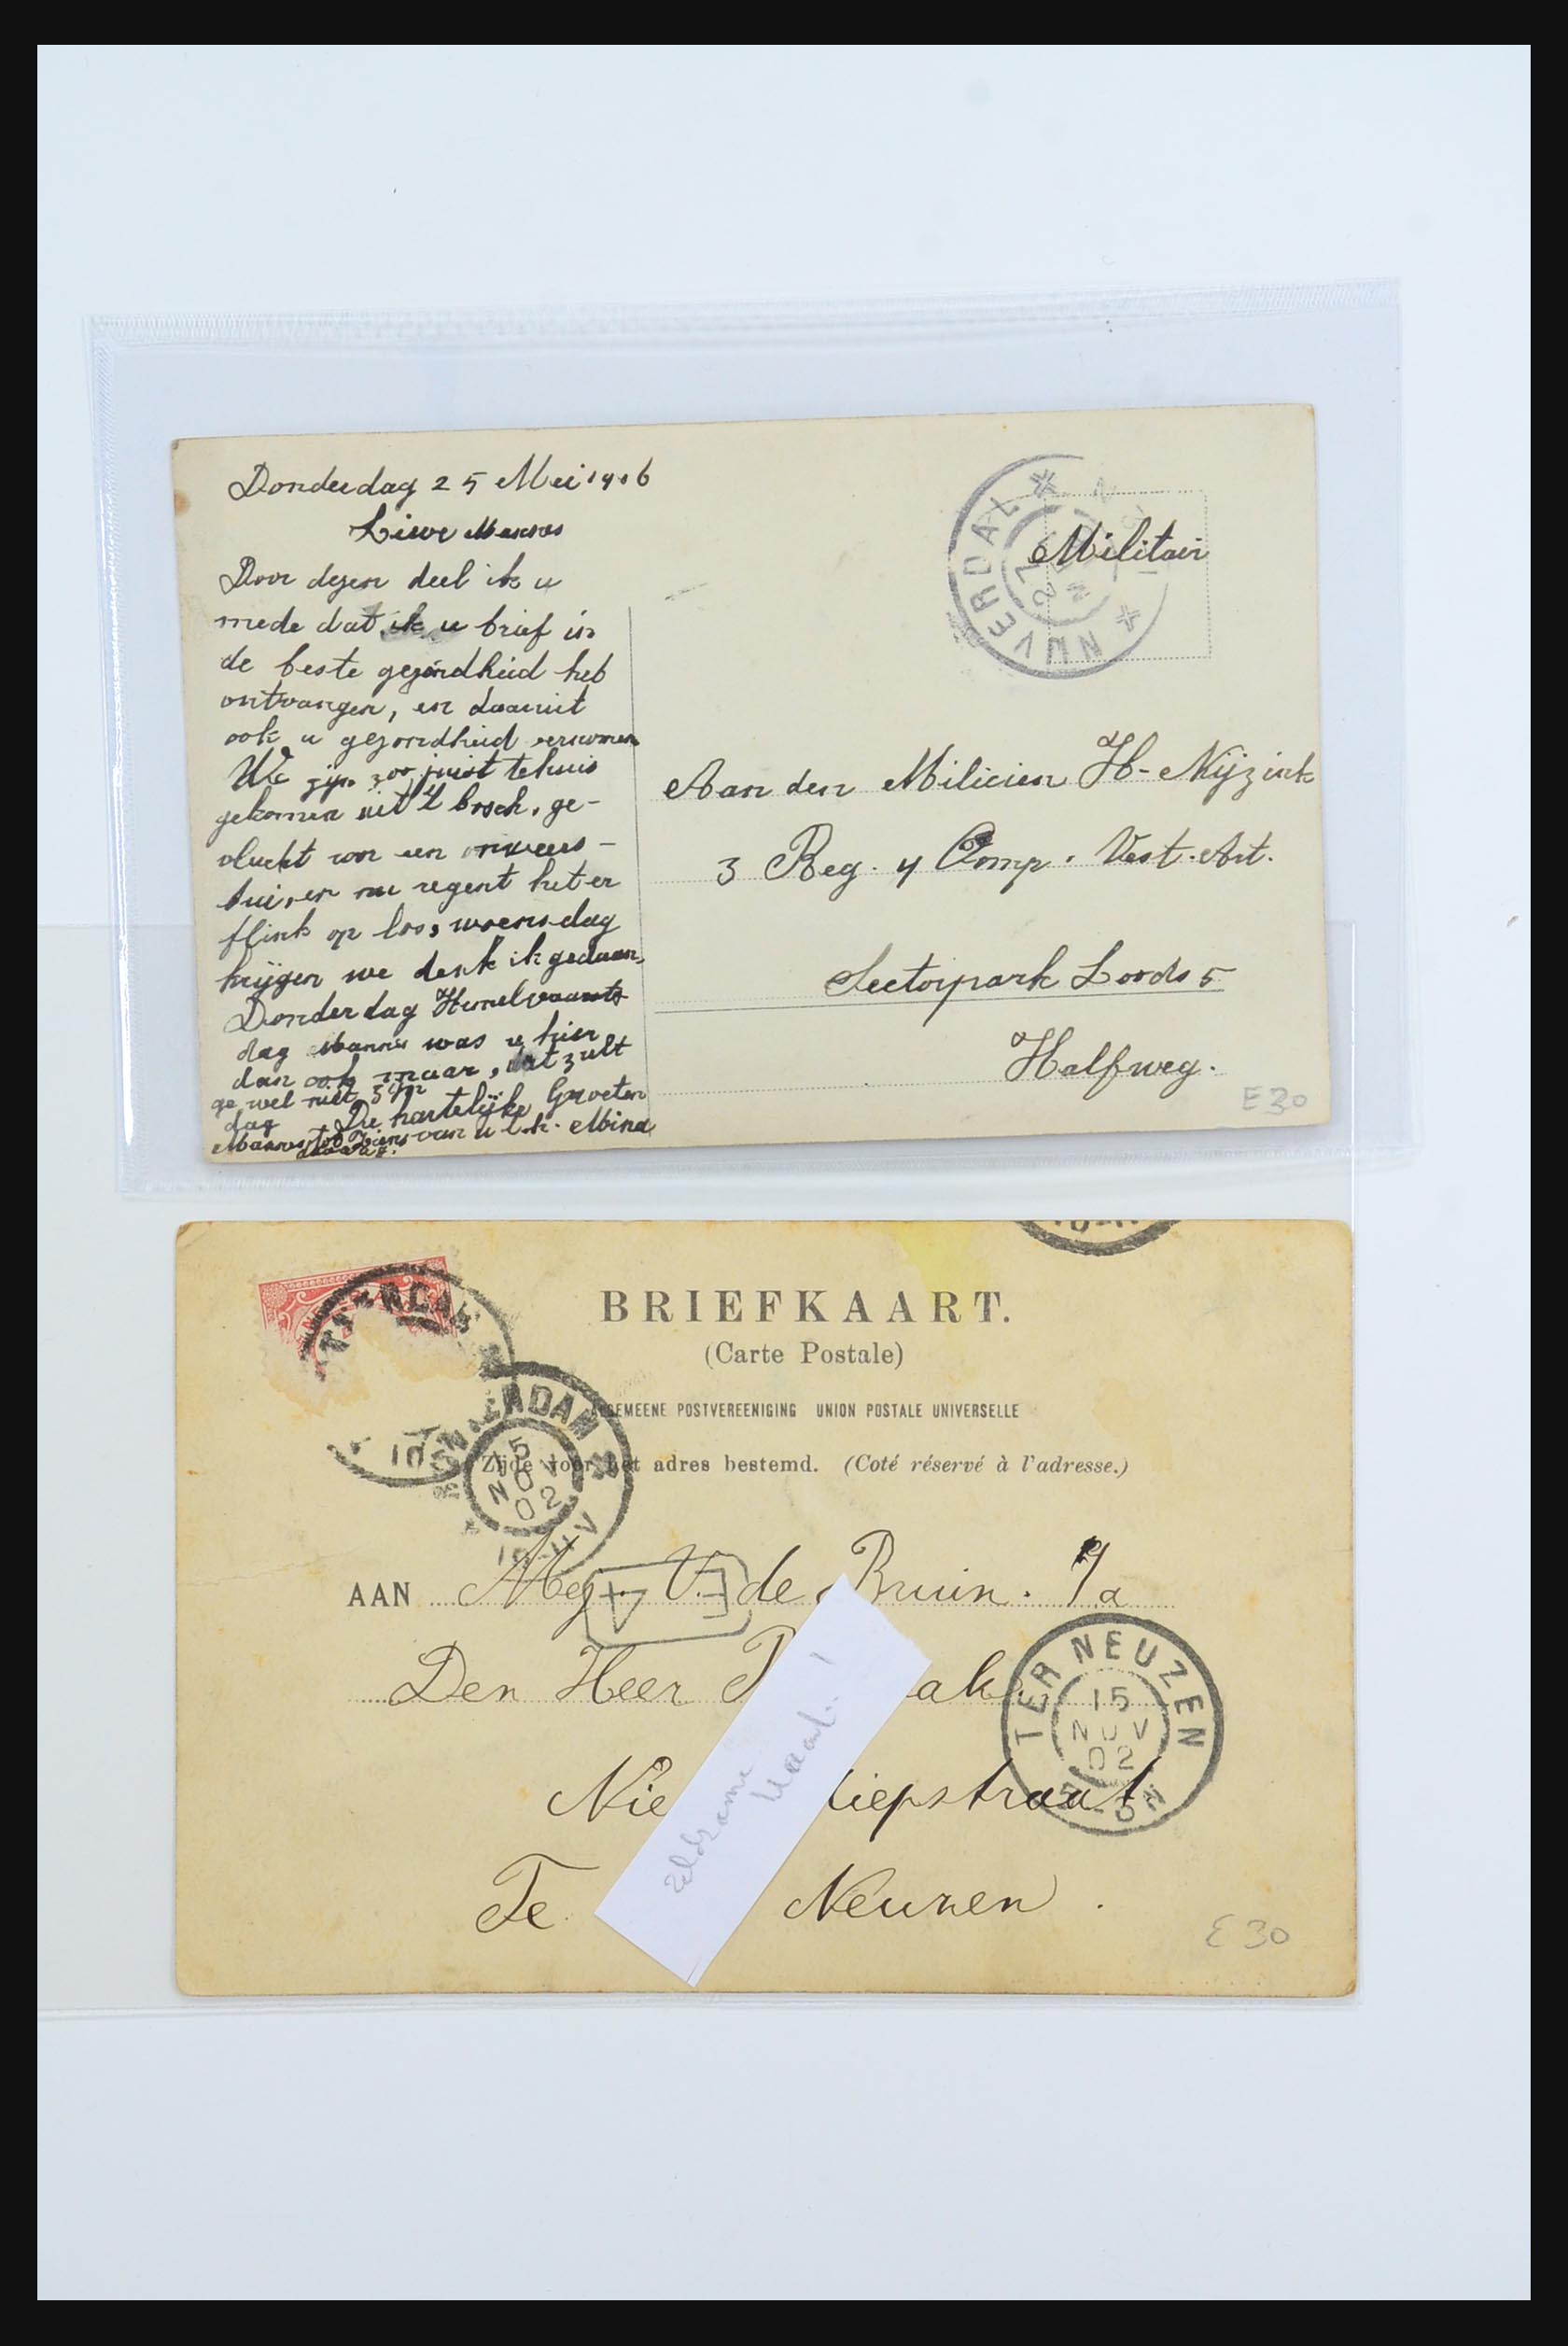 Donderdag 25 Mei 1916
Liewe Mannes
Door dezen deel ik u
mede dat ik u brief in
de beste gezondheid heb
ontvangen, en daaruit
ook u gezondheid vernomen
We zijn zoo juist tehuis
gekomen uit 't bosch, ge-
vlucht voor een onweers-
bui, en nu regent het er
flink op los, woensdag
krijgen we denk ik gedaan,
Donderdag Hemelvaarts
dag Mannes was u hier
dan ook maar, dat zult
ge wel niet zijn
dag De hartelijke Groeten
Mannes tot Ziens van u l.h. Mina
NIJVERDAL
Militair
Aan den Milicien H- Nijzink
3 Reg. 4 Comp. Vest. Art.
Sectorpark Loods 5
Halfweg.
E 30
BRIEFKAART.
(Carte Postale)
ALGEMEENE POSTVEREENIGING UNION POSTALE UNIVERSELLE
Zijde voor het adres bestemd. (Coté réservé à l'adresse.)
15
NOV
02
AAN Mej. V. de Bruin. 7a
Den Heer P ak
Nie diepstraat
Te Neuzen.
TER NEUZEN
15
NOV
02
5-6N
E 30